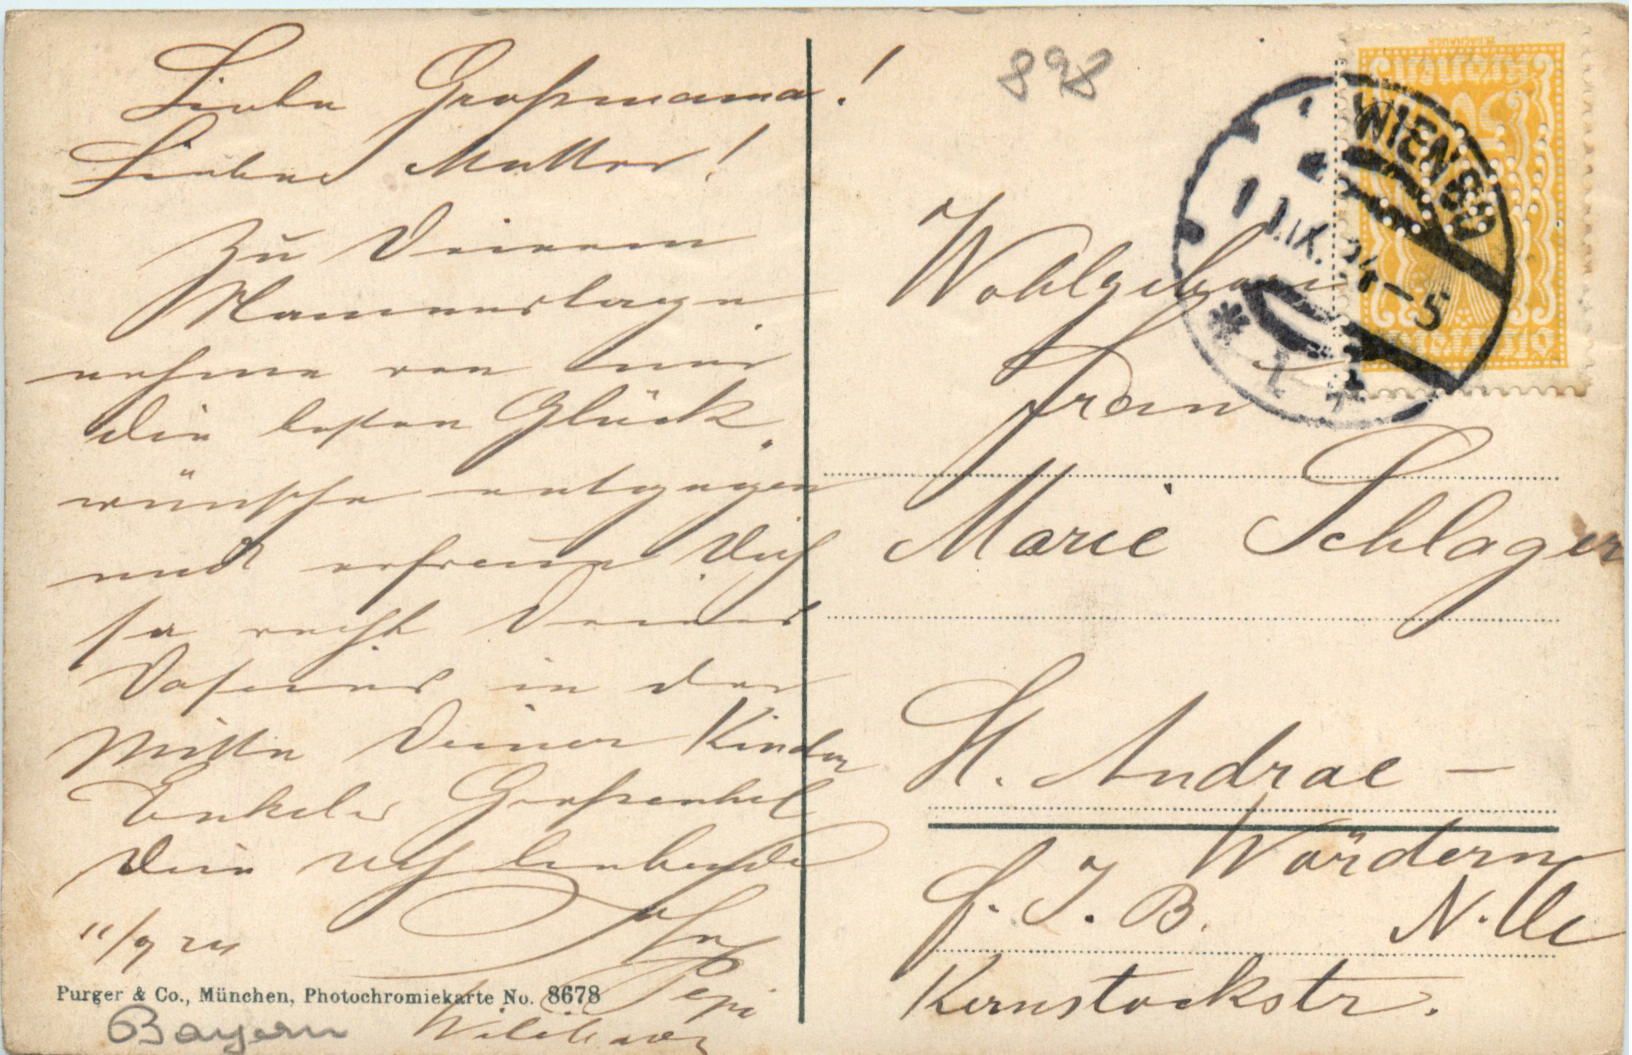 Liebe Großmama!
Liebe Mutter!
Zu Deinem
Namenstage
nehme von mir
die besten Glück
wünsche entgegen
und erfreue Dich
so recht Deines
Daseins in der
Mitte Deiner Kinder
Enkeln Großenkel
Dein Dich liebende
Sohn
11/9 24
Pepi
Purger & Co., München, Photochromiekarte No. 8678
Bayern
898
WIEN
11.IX.24-5
* 1 *
Wohlgeboren
Frau
Marie Schlager
St. Andrae –
Wördern
f. J. B. N. Oe
Kernstockstr.